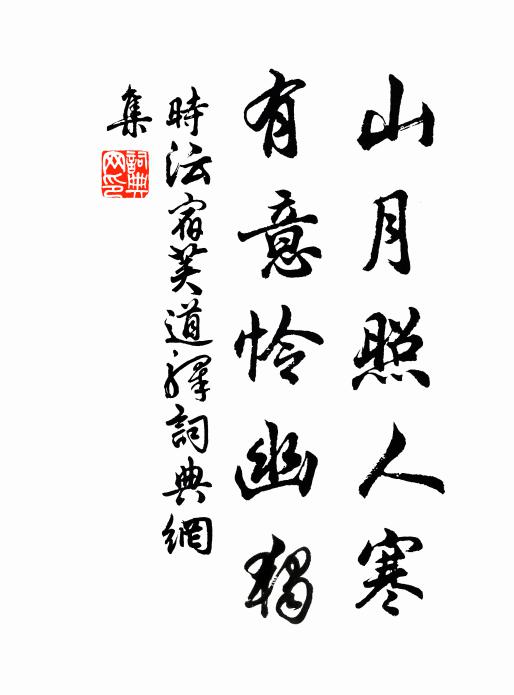 山月照人寒
有意怜幽独
時沄宿芙道驛詞典網
集
詞典網印